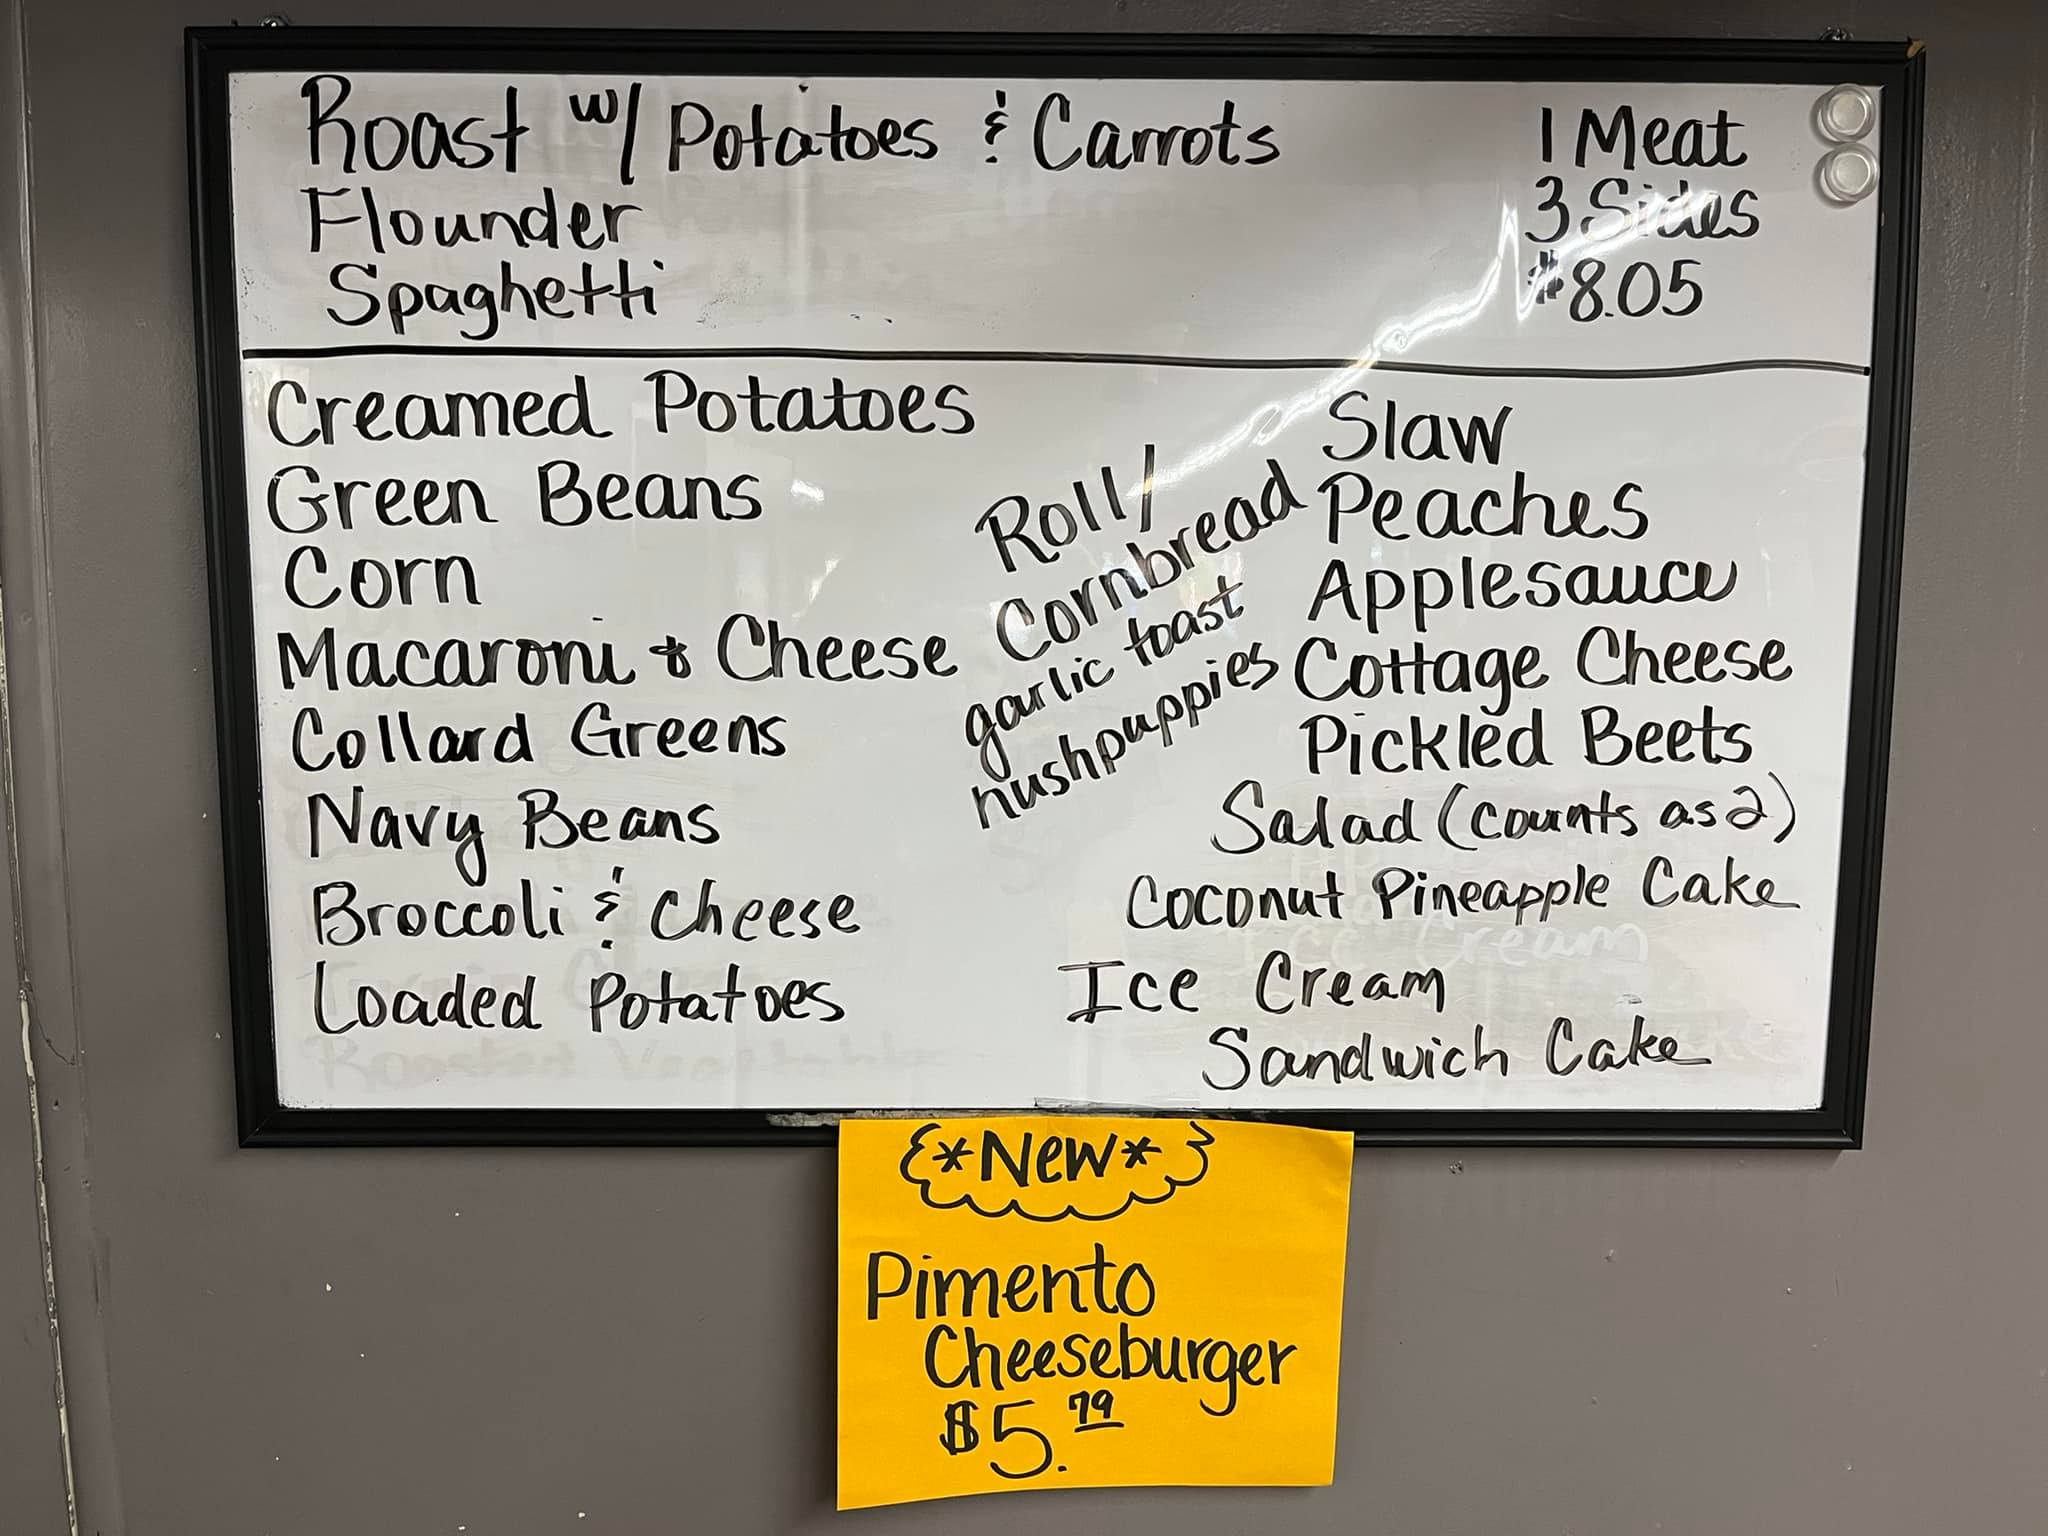 Roast w/ Potatoes & Carrots
Flounder
Spaghetti
1 Meat
3 Sides
$8.05
Creamed Potatoes
Green Beans
Corn
Macaroni & Cheese
Collard Greens
Navy Beans
Broccoli & Cheese
Loaded Potatoes
Roll/
Cornbread
garlic toast
hushpuppies
Slaw
Peaches
Applesauce
Cottage Cheese
Pickled Beets
Salad (counts as 2)
Coconut Pineapple Cake
Ice Cream
Sandwich Cake
*New*
Pimento
Cheeseburger
$5.79